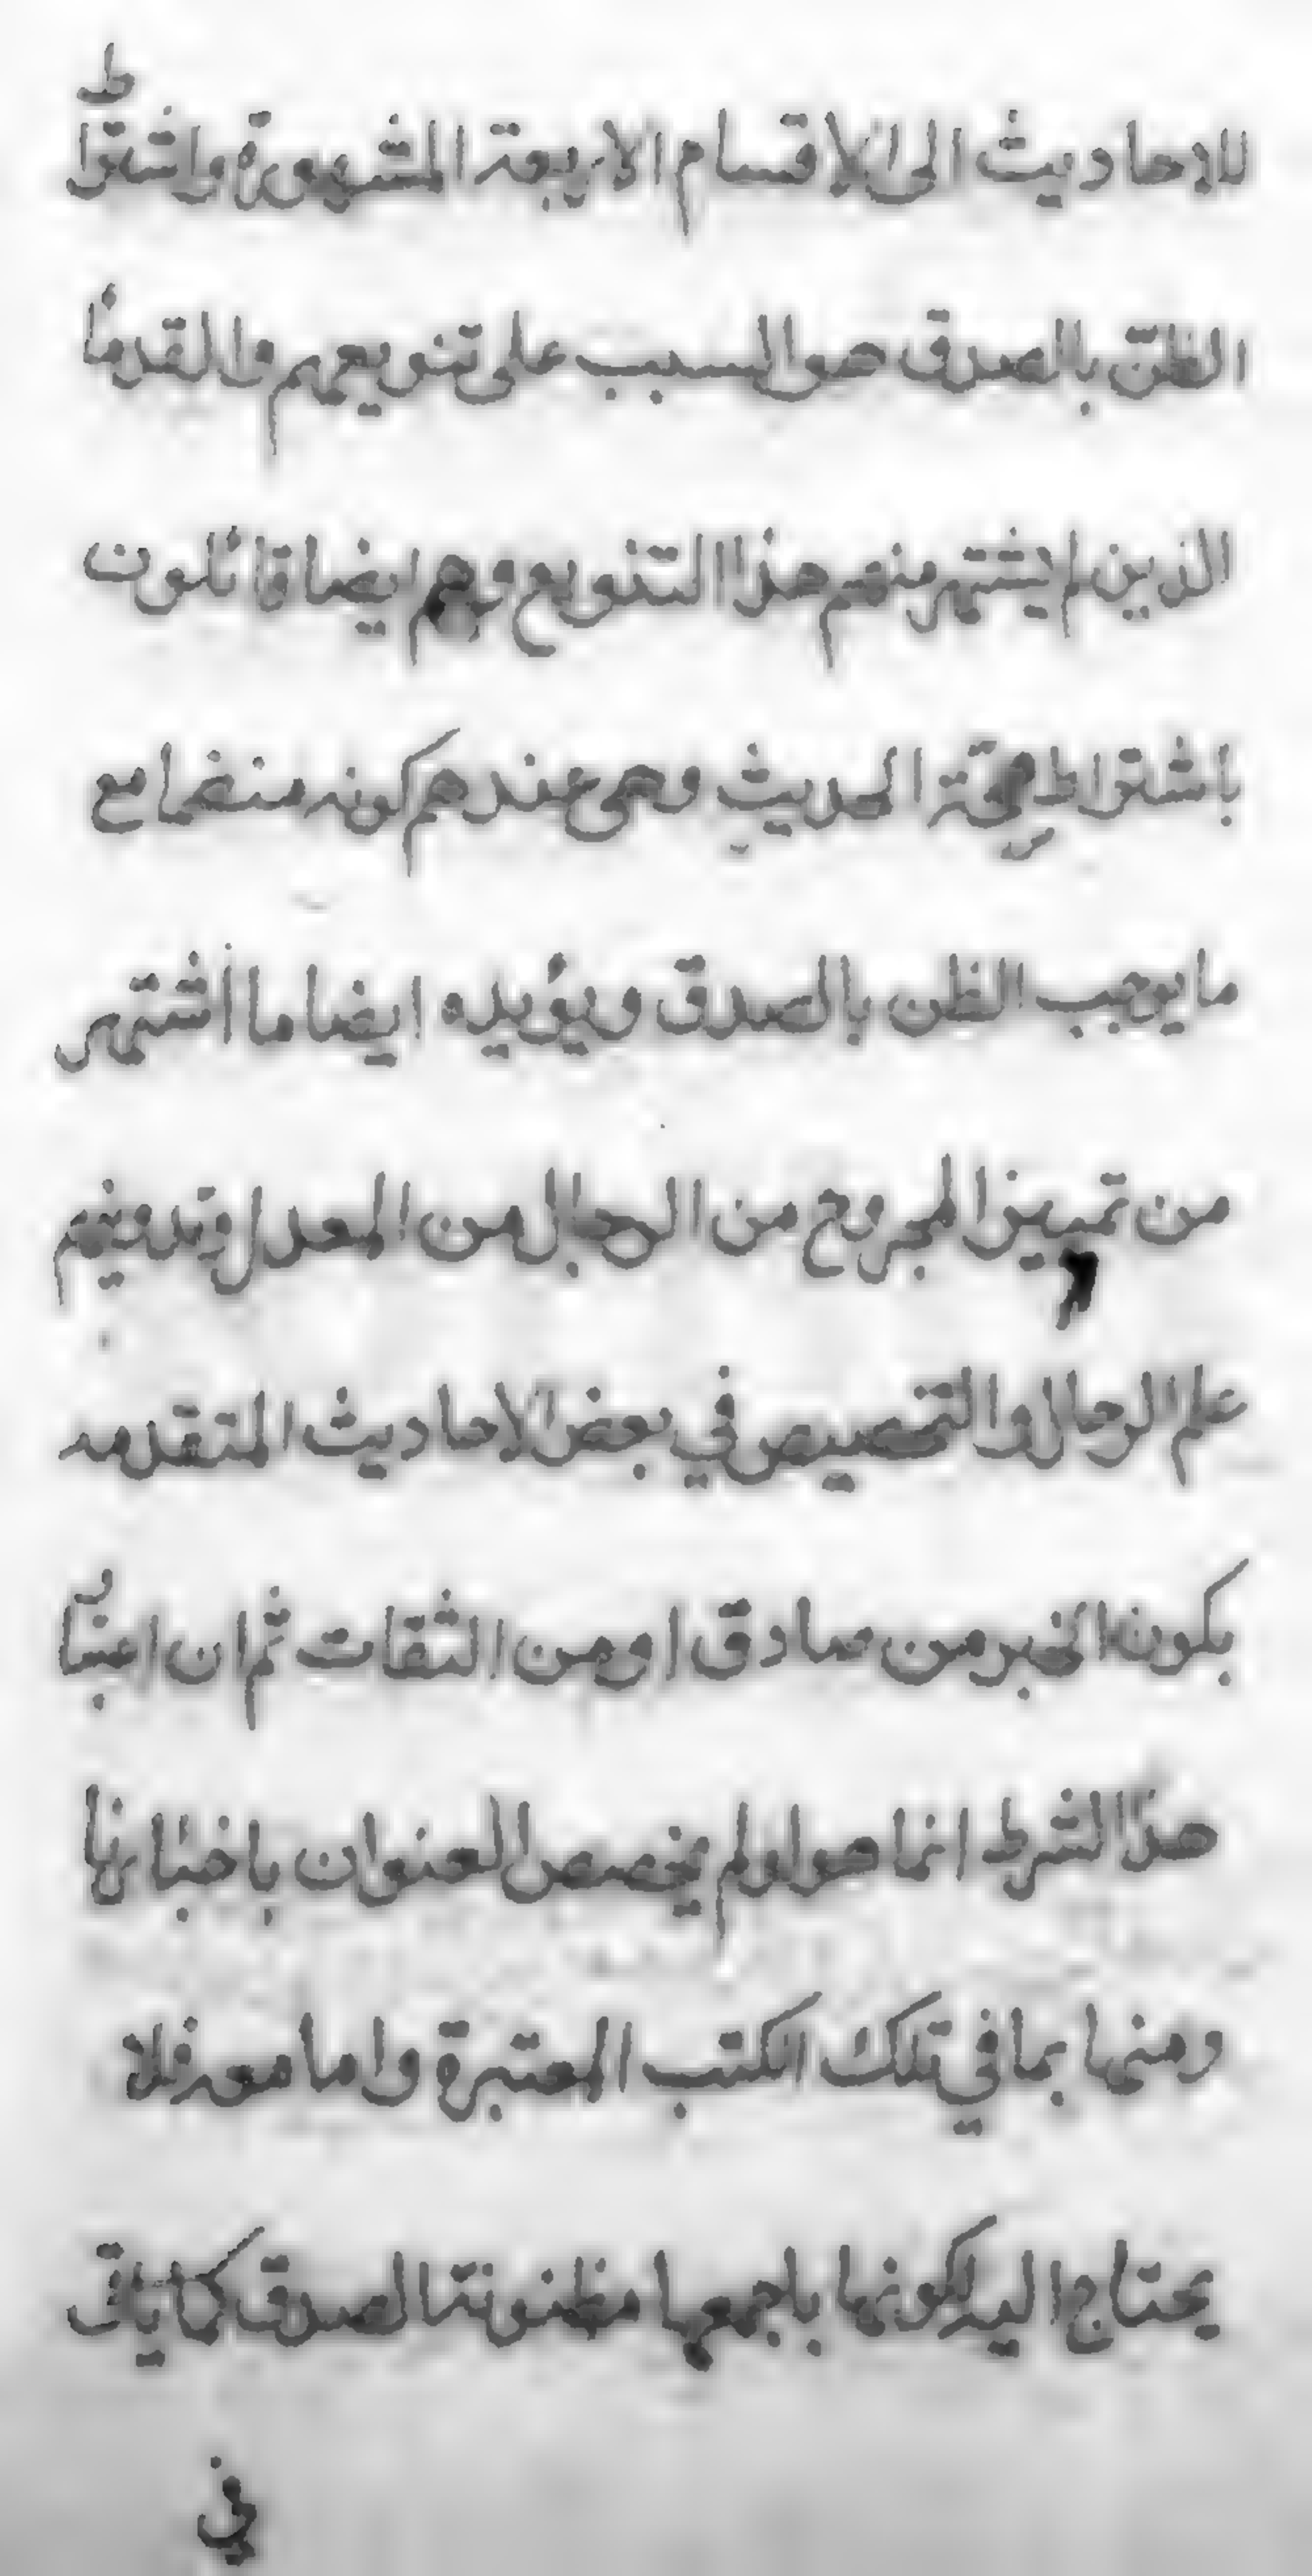 للاحاديث الى الاقسام الاربعة المشهورة واشتراط
الظن بالصدق هو السبب على تنويعهم والقدماء
الذين لم يشتهر منهم هذا التنويع وهم ايضا قائلون
باشتراط صحّة الحديث وهى عندهم كونه منضما مع
ما يوجب الظن بالصدق ويؤيده ايضا ما اشتهر
من تمييز المجروح من الرجال من المعدل وتدوينهم
علم الرجال والتخصيص في بعض الاحاديث المتقدمه
بكون الخبر من صادق او من الثقات ثم ان اعتبار
هذا الشرط انما هو لو لم يخصص العنوان باخبارنا
ومنها بما في تلك الكتب المعتبرة واما معه فلا
يحتاج اليه لكونها باجمعها مظنونة الصدق كما ياتى
في